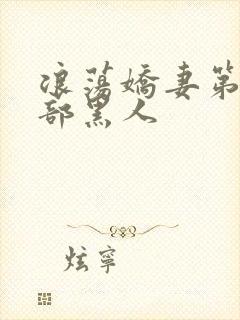 浪蕩嬌妻第
部黑人
炫寧